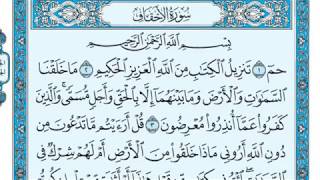 سُورَةُ الأَحْقَافِ
بِسْمِ اللَّهِ الرَّحْمَٰنِ الرَّحِيمِ
حمٓ ١ تَنزِيلُ الْكِتَٰبِ مِنَ اللَّهِ الْعَزِيزِ الْحَكِيمِ ٢ مَا خَلَقْنَا
السَّمَٰوَٰتِ وَالْأَرْضَ وَمَا بَيْنَهُمَا إِلَّا بِالْحَقِّ وَأَجَلٍ مُّسَمًّى ۚ وَالَّذِينَ
كَفَرُوا عَمَّا أُنذِرُوا مُعْرِضُونَ ٣ قُلْ أَرَءَيْتُم مَّا تَدْعُونَ مِن
دُونِ اللَّهِ أَرُونِي مَاذَا خَلَقُوا مِنَ الْأَرْضِ أَمْ لَهُمْ شِرْكٌ فِي